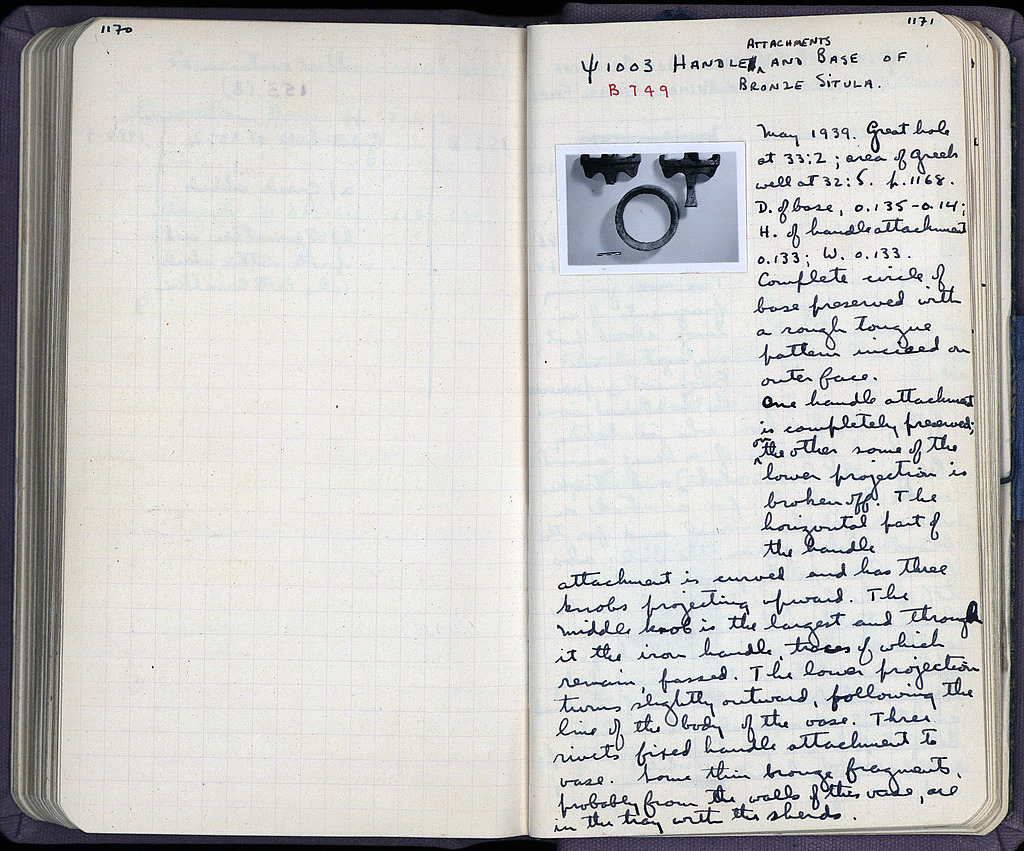 1170
1171
ATTACHMENTS
Ψ 1003 HANDLE AND BASE OF
B 749 BRONZE SITULA.
May 1939. Great hole
at 33:2; area of Greek
well at 32:5. p. 1168.
D. of base, 0.135-0.14;
H. of handle attachment
0.133; W. 0.133.
Complete circle of
base preserved with
a rough tongue
pattern incised on
outer face.
One handle attachment
is completely preserved;
on the other some of the
lower projection is
broken off. The
horizontal part of
the handle
attachment is curved and has three
knobs projecting upward. The
middle knob is the largest and through
it the iron handle, traces of which
remain, passed. The lower projection
turns slightly outward, following the
line of the body of the vase. Three
rivets fixed handle attachment to
vase. Some thin bronze fragments,
probably from the walls of this vase, are
in the tray with the sherds.